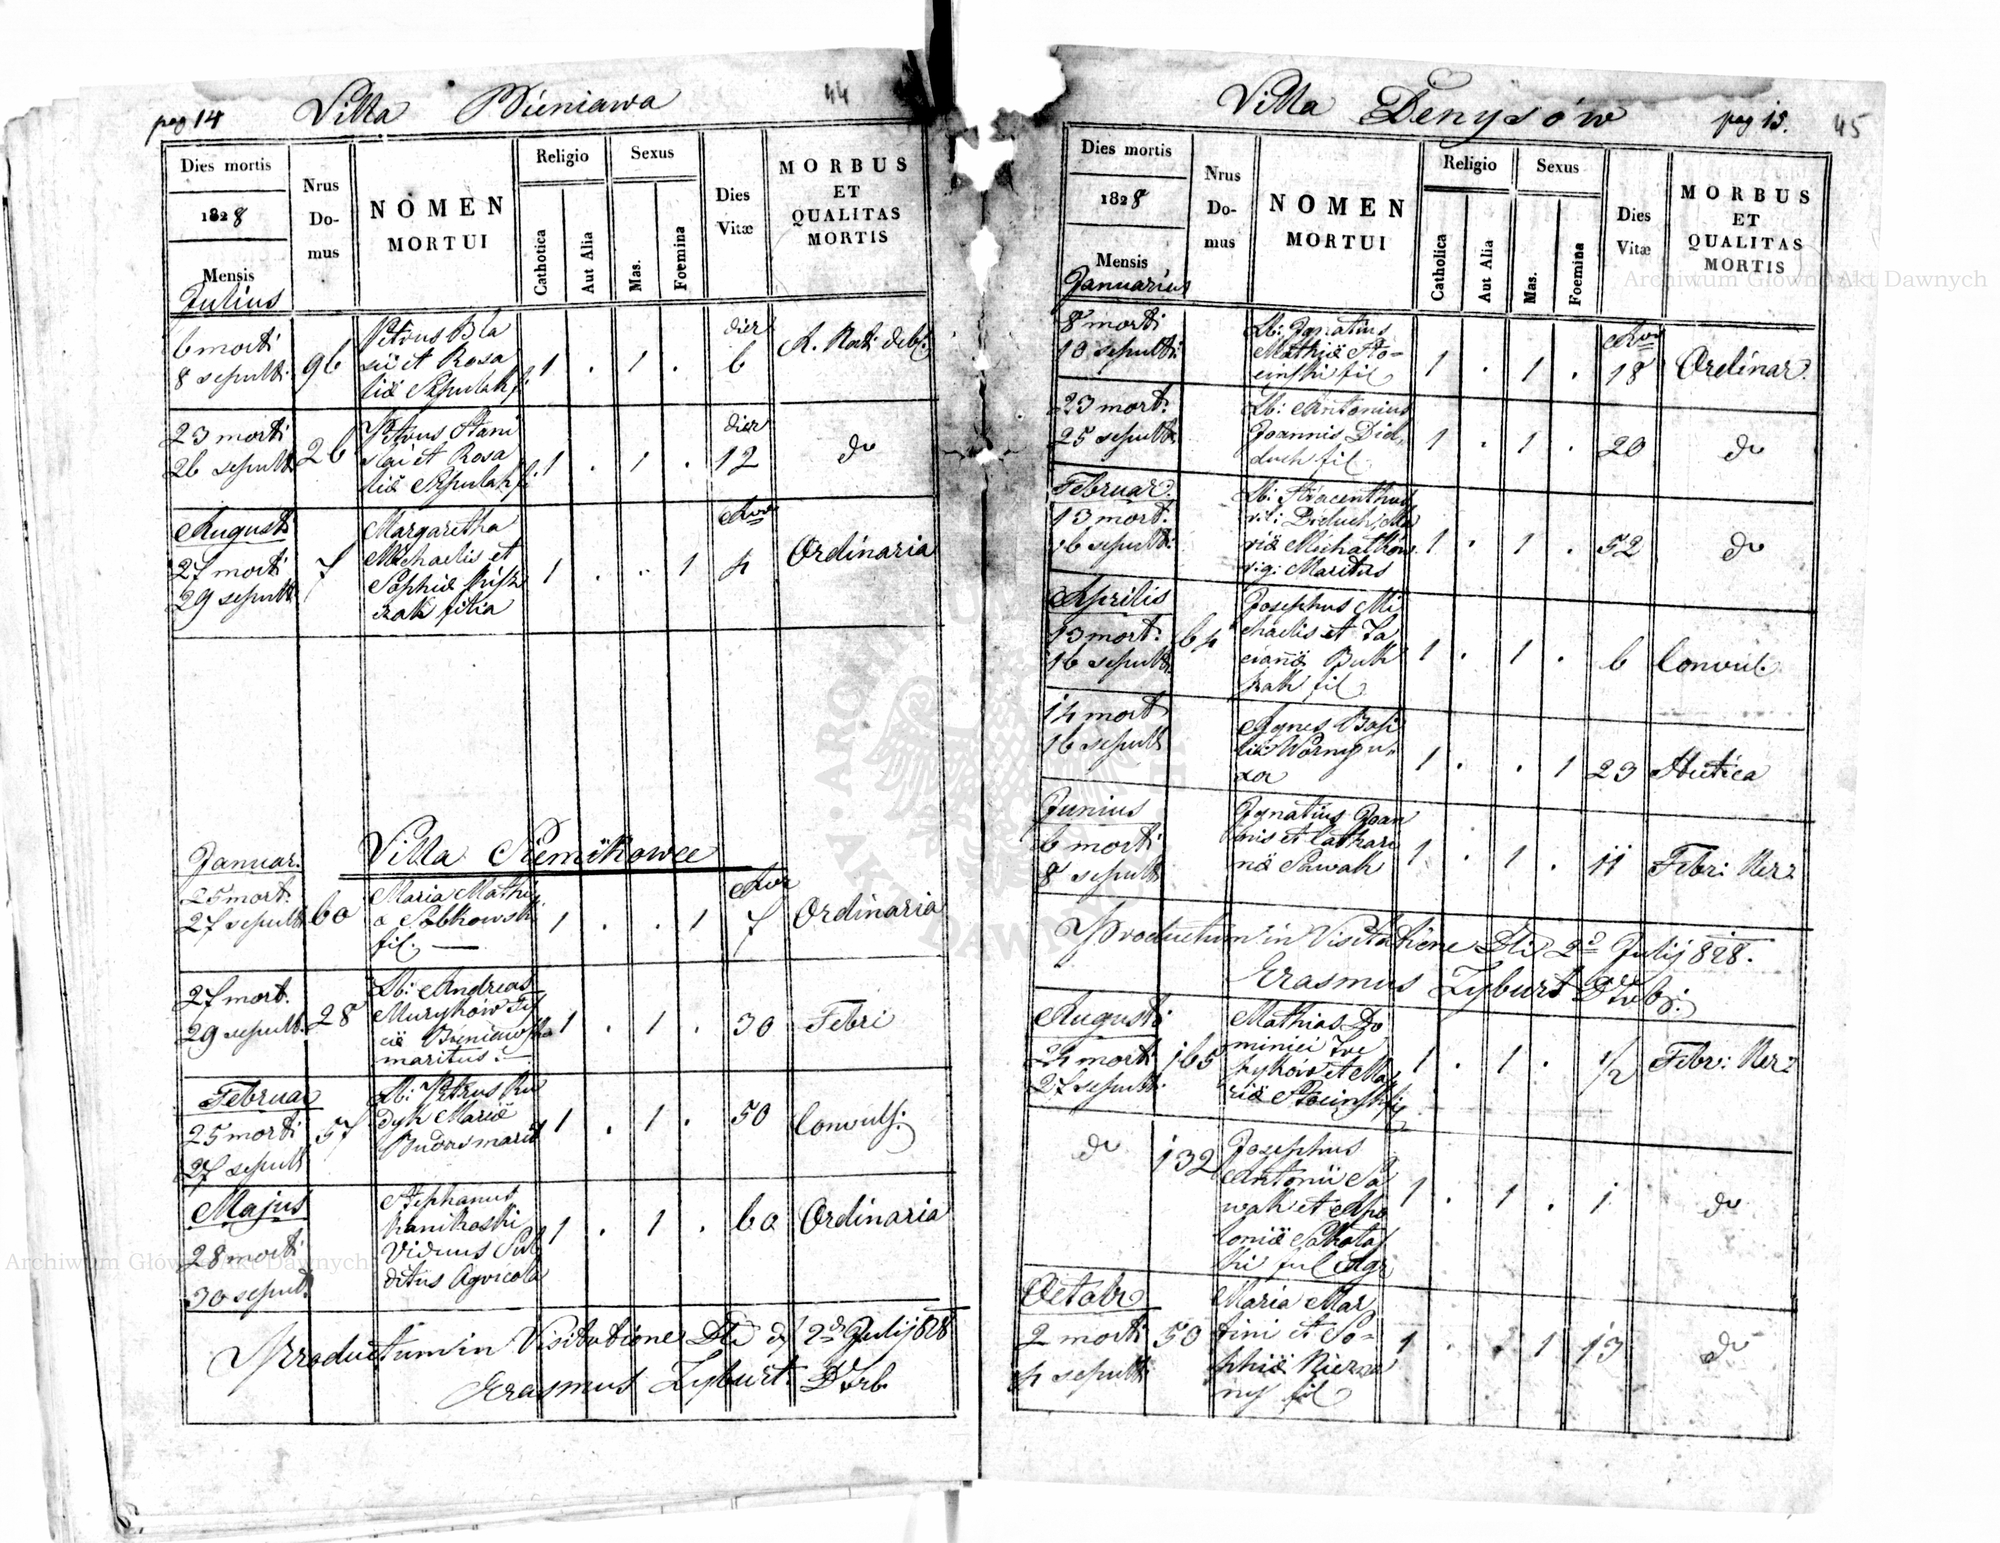 pag 14
Villa Bieniawa
44
Dies mortis
1828
Mensis
Julius
Nrus
Do-
mus
NOMEN
MORTUI
Religio
Cathotica
Aut Alia
Sexus
Mas.
Foemina
Dies
Vitæ
MORBUS
ET
QUALITAS
MORTIS
6 morti
8 sepulti
96
Petrus Bla
sii et Rosa
liæ
1 . 1 .
dier
6
23 morti
26 sepult
26
Petrus Stani
slai et Rosa
liæ
1 . 1 .
dier
12
do
Augusti
27 morti
29 sepulti
7
Margaretha
Michaelis et
Sophiæ
filia
1 . . 1
4
Ordinaria
Villa Siemikowce
Januar.
25 mort.
27 sepult
60
Maria Mathei
fil.
1 . . 1
7
Ordinaria
27 mort.
29 sepult.
28
Lb: Andreas
maritus
1 . 1 .
30
Febri
Februar
25 morti
27 sepult
57
Lb: Petrus Ru
dyk Mariæ
1 . 1 .
50
Convuls:
Majus
28 morti
30 sepult.
Stephanus
Viduus Sub
ditus Agricola
1 . 1 .
60
Ordinaria
Productum in Visitatione 2da Julij 828
Erasmus Zyburt
Villa Denysów
pag 15.
45
Dies mortis
1828
Mensis
Januarius
Nrus
Do-
mus
NOMEN
MORTUI
Religio
Catholica
Aut Alia
Sexus
Mas.
Foemina
Dies
Vitæ
MORBUS
ET
QUALITAS
MORTIS
8 morti
10 sepulti
Lb: Ignatius
Mathiæ Sto-
cinski fil
1 . 1 .
18
Ordinar.
23 mort.
25 sepult.
Lb: Antonius
Joannis Did
duch fil
1 . 1 .
20
do
Februar.
13 mort.
16 sepulti
Lb: Hiacenthus
Maritus
1 . 1 .
52
do
Aprilis
13 mort.
16 sepult
64
Josephus Mi
chaelis et Ta
fil
1 . 1 .
6
Convul.
14 mort
16 sepult
Agnes Basi
lii Worny u-
xor
1 . . 1
23
Hectica
Junius
6 morti
8 sepult
Ignatius Joan
nis et Cathari
næ Sawak
1 . 1 .
11
Febr: Ner:
Productum in Visitatione 2da Julij 828.
Erasmus Zyburt
Augusti
24 morti
27 sepult.
165
Mathias Do
minici
et Ma
riæ
1 . 1 .
1/2
Febr: Ner:
do
132
Josephus
Antonii Sa
wak et Apo
loniæ
1 . 1 .
1
do
Octobr
2 morti
4 sepulti
50
Maria Mar
tini et So-
phiæ
fil
1 . . 1
13
do
Archiwum Główne Akt Dawnych
Archiwum Główne Akt Dawnych